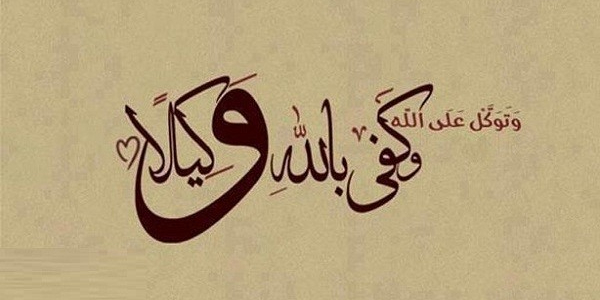 وَتَوَكَّلْ عَلَى اللَّه
وَكَفَى بِاللَّهِ وَكِيلًا